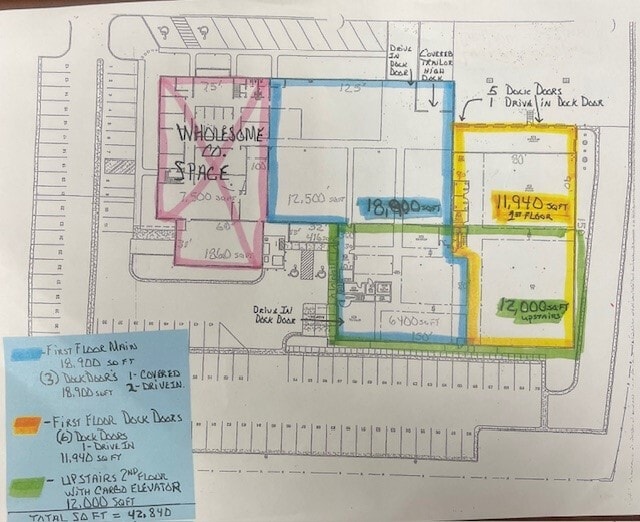 DRIVE
IN
DOCK
DOOR
COVERED
TRAILOR
HIGH
DOCK
5 DOCK DOORS
1 DRIVE IN DOCK DOOR
75'
125'
WHOLESOME
CO.
SPACE
100'
80'
7,500 SQFT
12,500 SQFT
18,900 SQFT
11,940 SQFT
1ST FLOOR
60'
32'
1860 SQFT
DRIVE IN
DOCK DOOR
6400 SQFT
12,000 SQFT
UPSTAIRS
- FIRST FLOOR MAIN
18,900 SQ FT
(3) DOCK DOOR'S 1- COVERED
18,900 SQFT 2- DRIVE IN.
- FIRST FLOOR DOCK DOORS
(6) DOCK DOORS
1- DRIVE IN
11,940 SQ FT
- UPSTAIRS 2ND FLOOR
WITH CARGO ELEVATOR
12,000 SQFT
TOTAL SQ FT = 42,840